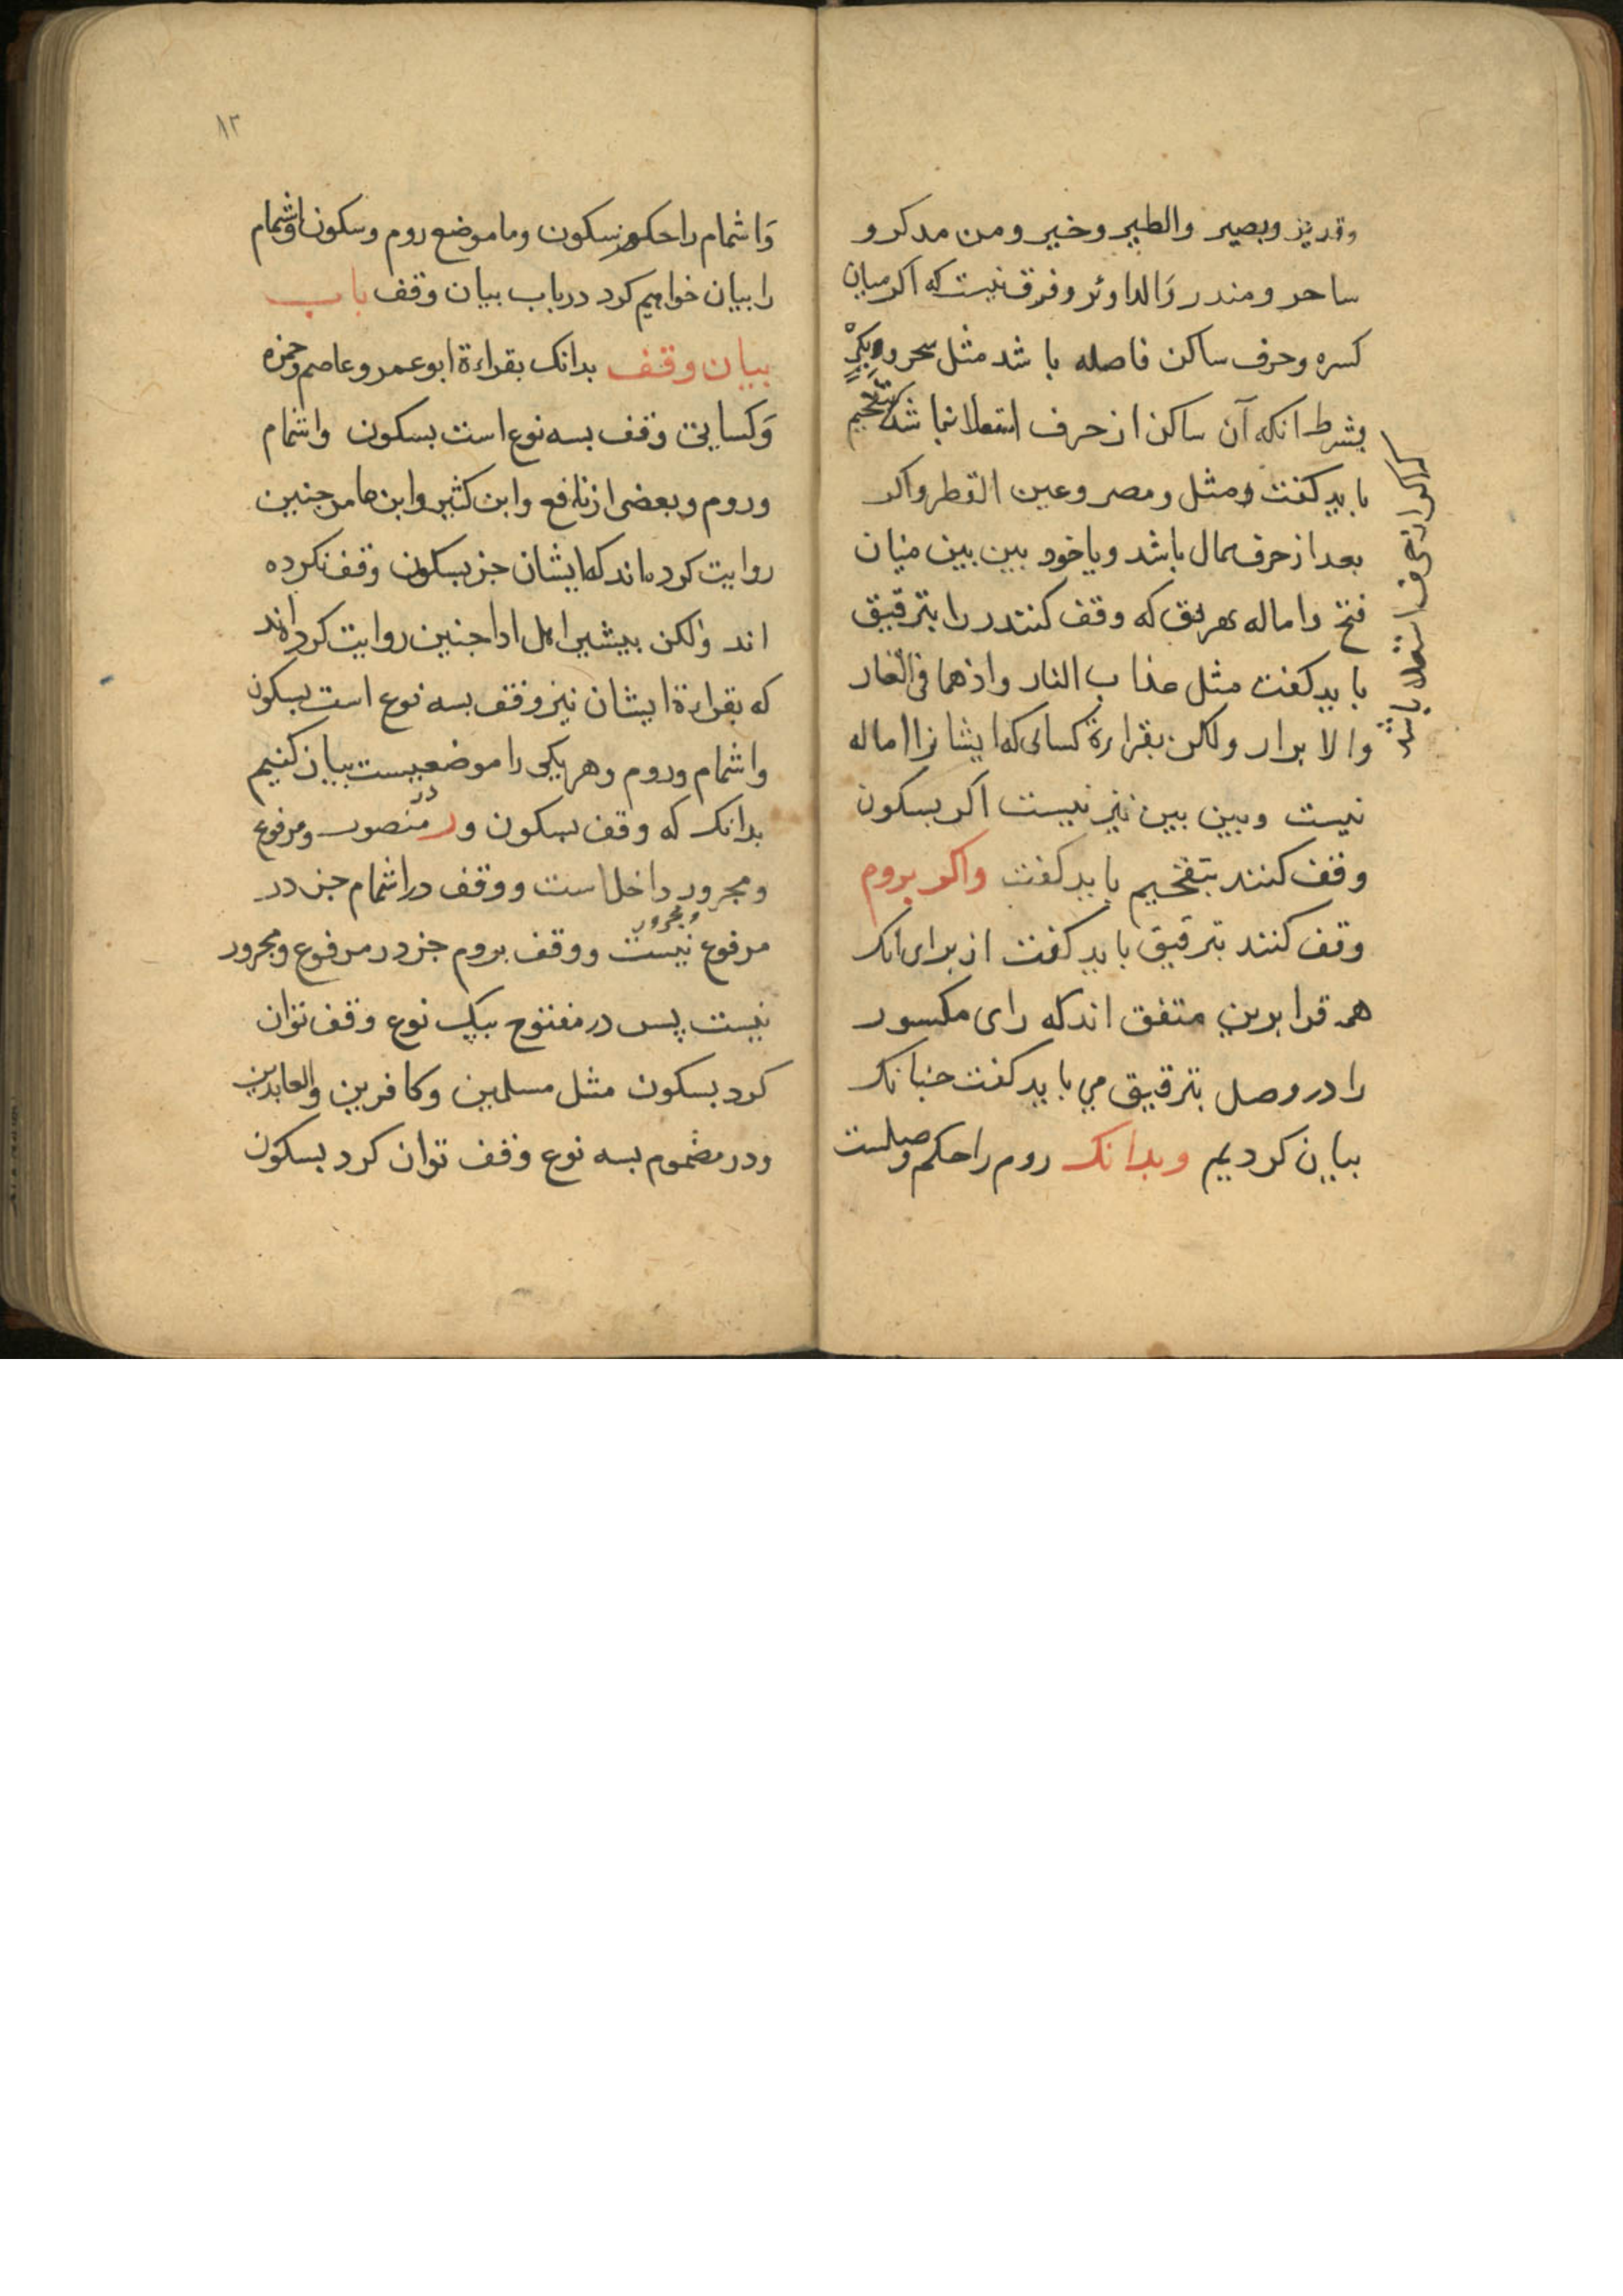 وقدیر وبصیر والطیر وخیر ومن مدکر و
ساحر ومنذر والدوائر وفرق نیست که اکر میان
کسره وحرف ساکن فاصله باشد مثل سحر وبکر
بشرط انکه آن ساکن از حرف استعلا نباشد بتفخیم
باید کفت ومثل ومصر وعین القطر واکر
بعد از حرف ممال باشد ویا خود بین بین میان
فتح واماله بهر نوع که وقف کنند را بترقیق
باید کفت مثل عذاب النار واذهما فی الغار
والابرار ولکن بقراءة کسانی که ایشانرا اماله
نیست وبین بین نیز نیست اکر بسکون
وقف کنند بتفخیم باید کفت واکر بروم
وقف کنند بترقیق باید کفت از برای انک
همه قرا برین متفق اند که رای مکسور
را در وصل بترقیق می باید کفت جنانک
بیان کردیم وبدانک روم را حکم وصلست
که اکر از حرف استعلا باشد
۸۳
وَاشمام را حکم سکون وما موضع روم وسکون واشمام
را بیان خواهیم کرد در باب بیان وقف باب
بیان وقف بدانک بقراءة ابو عمرو عاصم وحمزه
وَکسایی وقف بسه نوع است بسکون واشمام
وروم وبعضی از نافع وابن کثیر وابن عامر جنین
روایت کرده اند که ایشان جز بسکون وقف نکرده
اند ولکن بیشتر اهل ادا جنین روایت کرده اند
که بقراءة ایشان نیز وقف بسه نوع است بسکون
واشمام وروم وهر یکی را موضعیست بیان کنیم
بدانک که وقف بسکون در منصوب ومرفوع
ومجرور داخل است ووقف در اشمام جز در
مرفوع نیست ووقف بروم جز در مرفوع ومجرور
ومجرور
نیست پس در مفتوح بیک نوع وقف توان
کرد بسکون مثل مسلمین وکافرین والعابدین
ودر مضموم بسه نوع وقف توان کرد بسکون